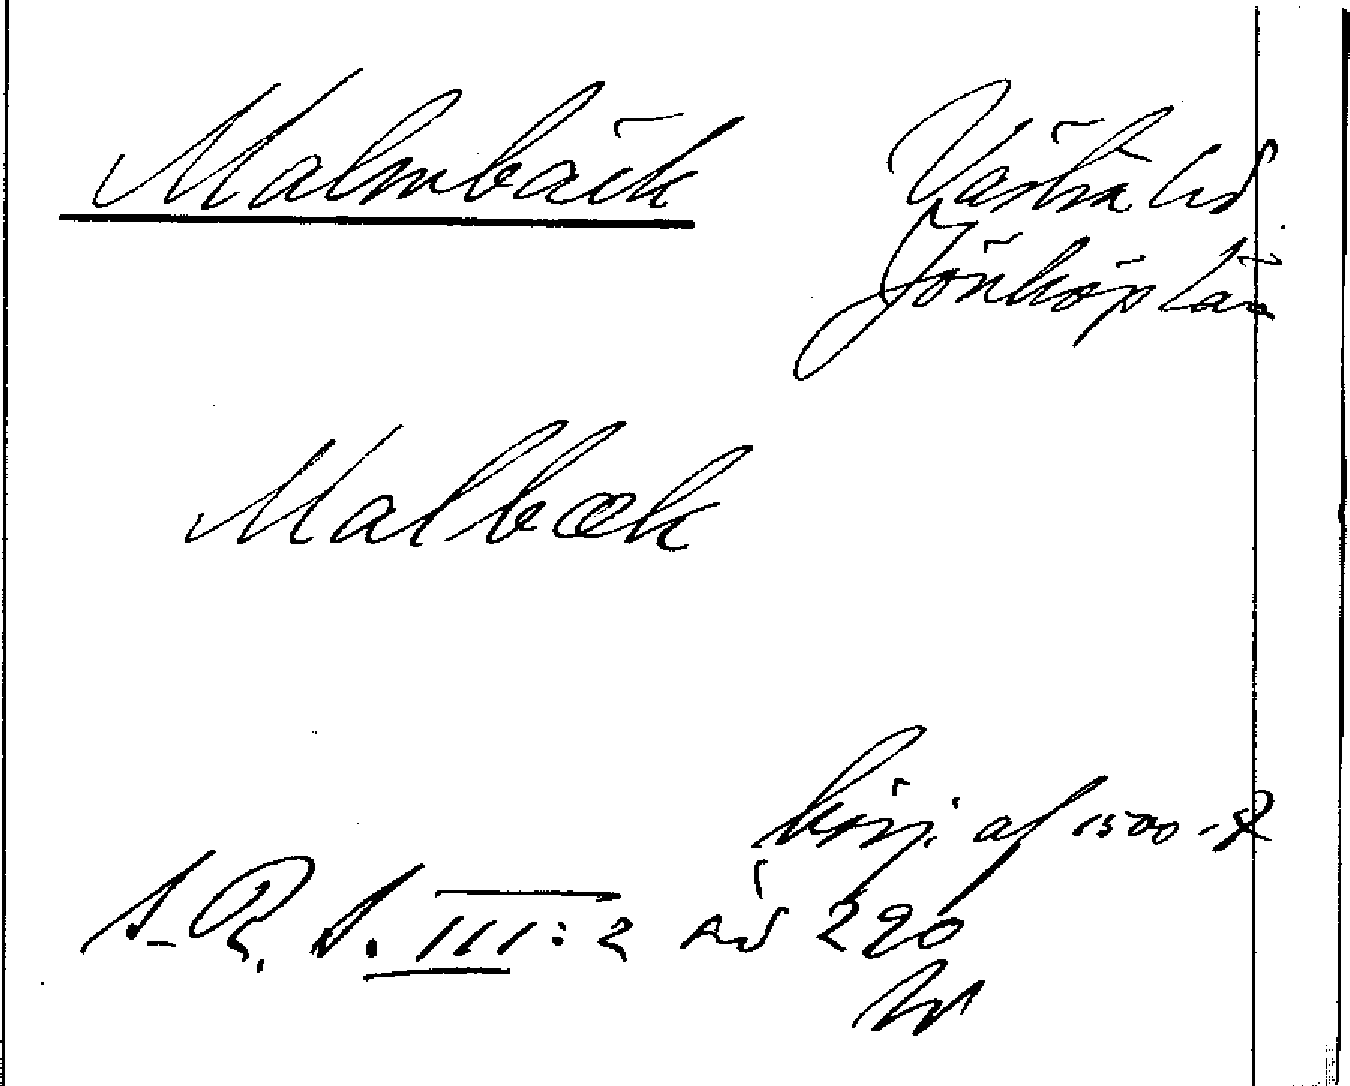 Malmbäck Västra hd
Jönköp län
Malbæk
börj. af 1500-t
S.R.S. III:2 sid 220